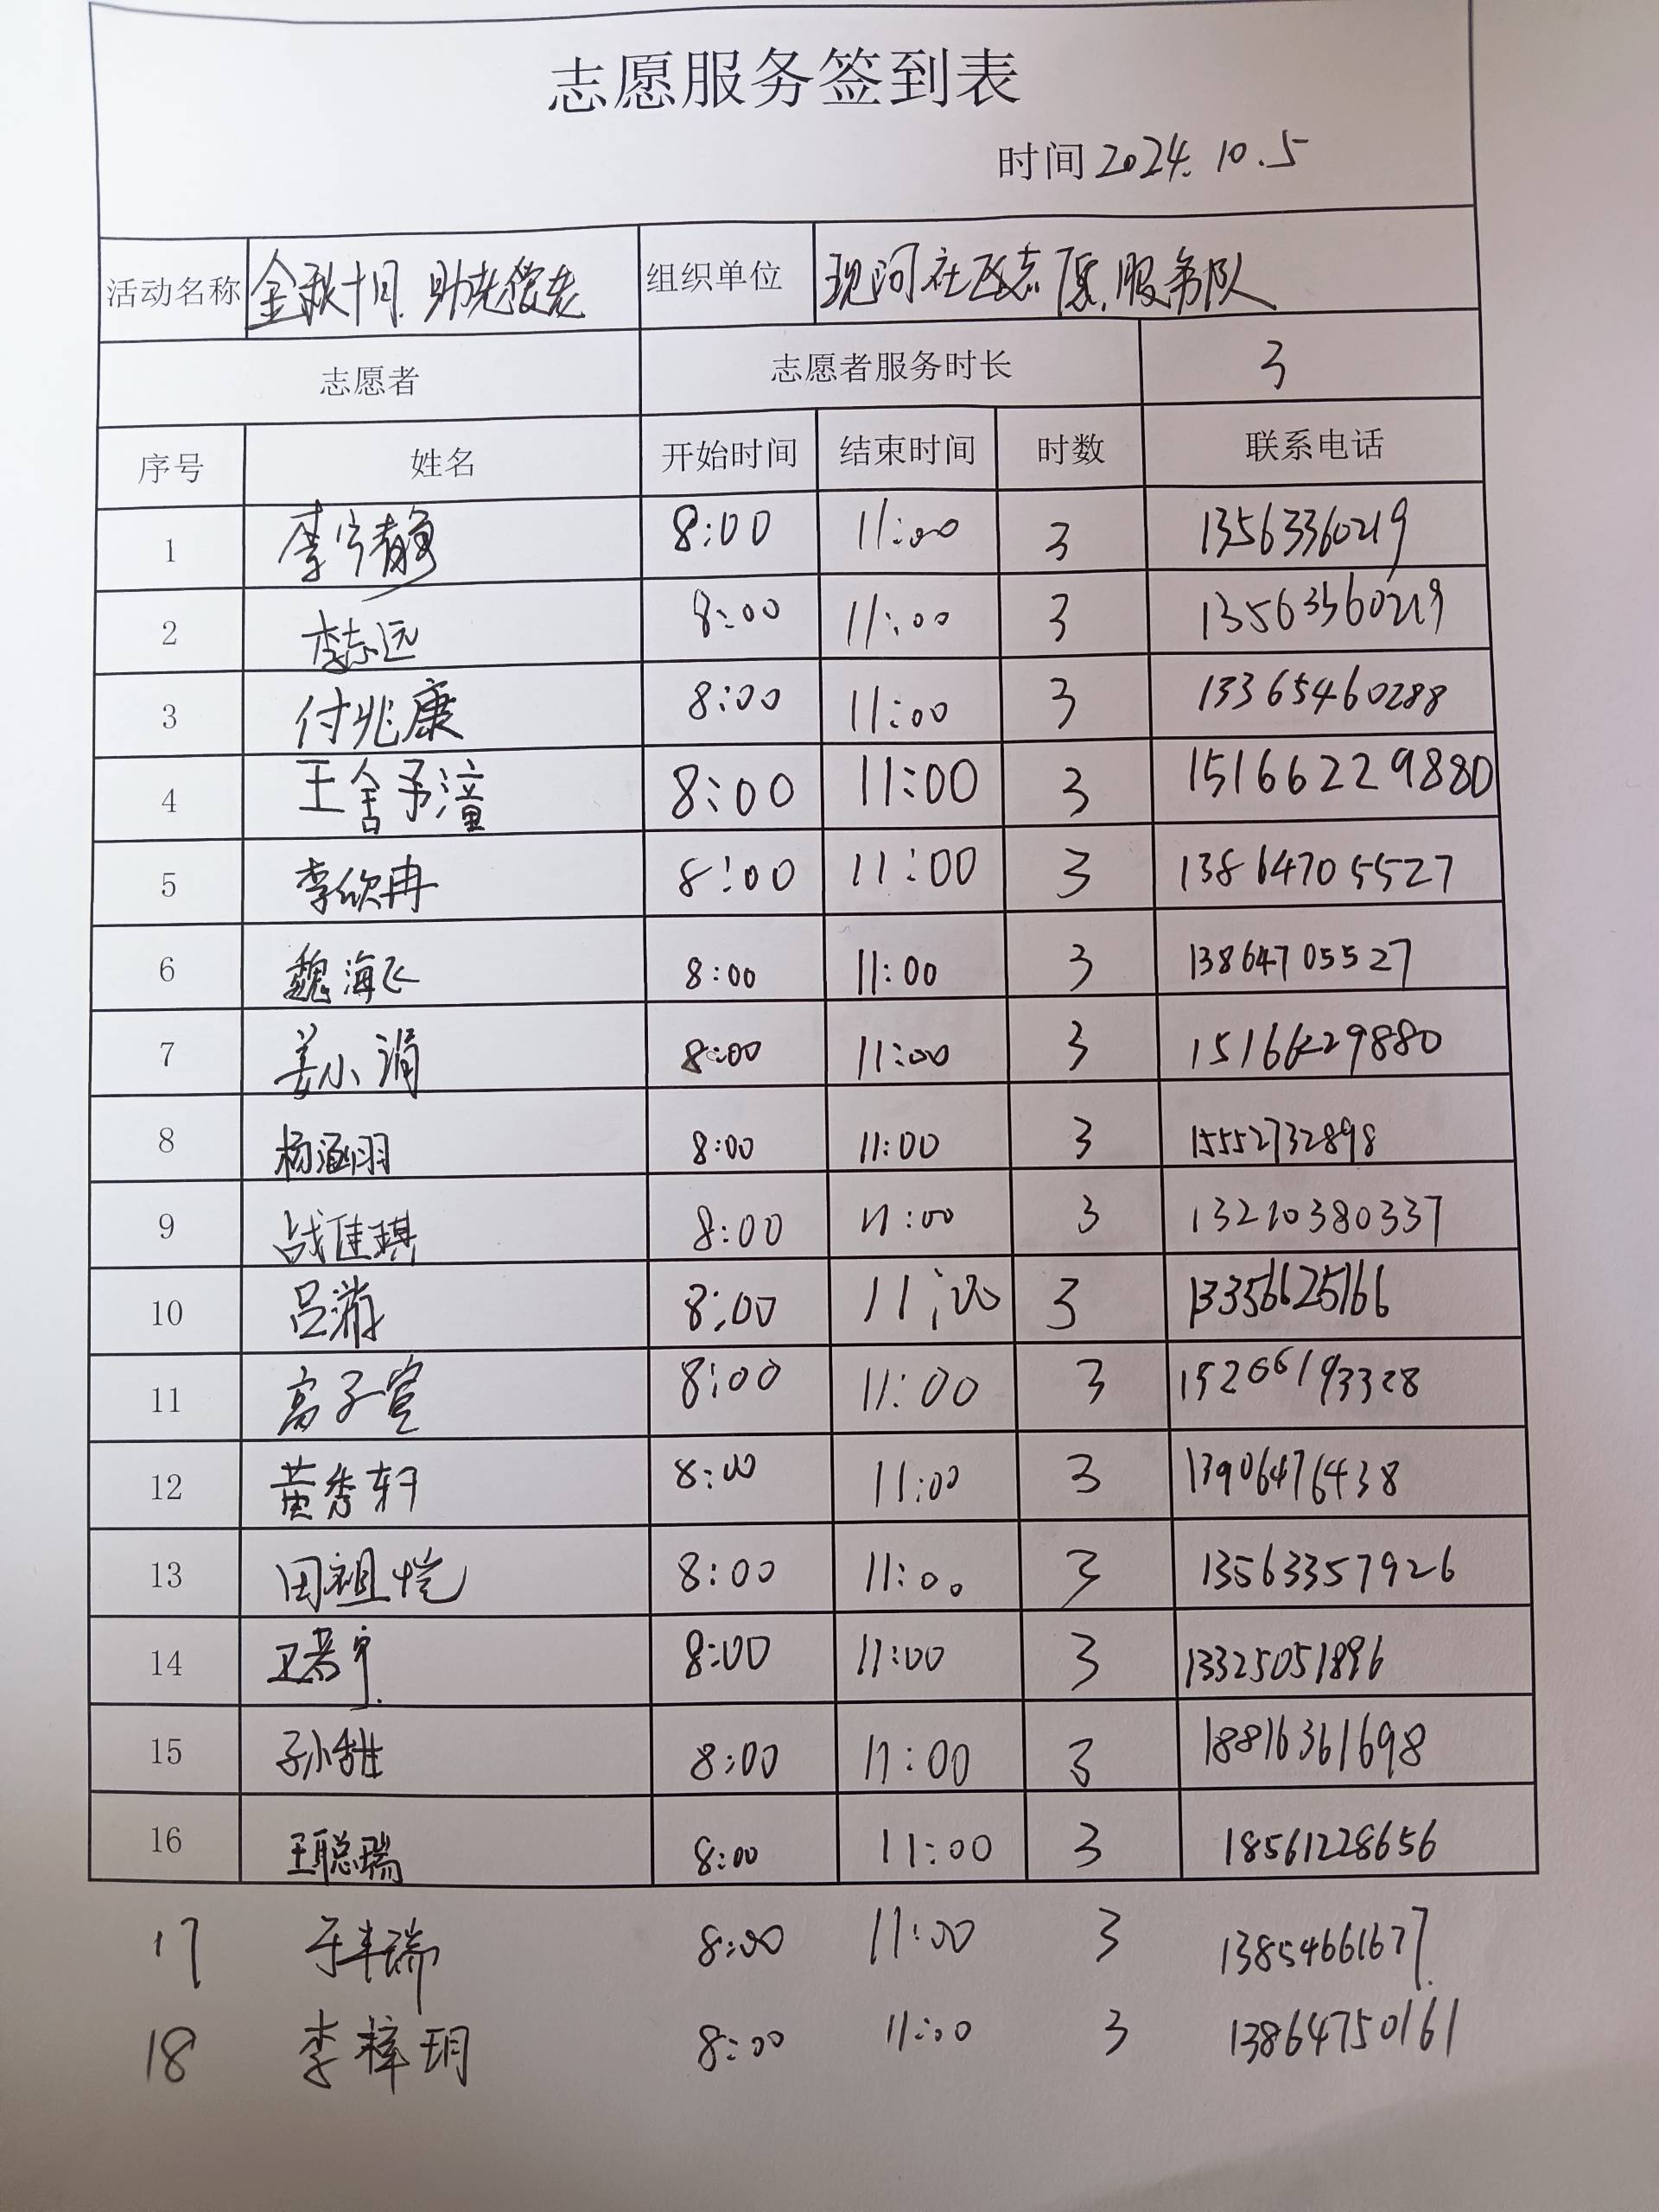 志愿服务签到表
时间 2024.10.5
活动名称 金秋十月.助老爱老 组织单位 现河社区志愿服务队
志愿者 志愿者服务时长 3
序号 姓名 开始时间 结束时间 时数 联系电话
1 李宁静 8:00 11:00 3 13563360219
2 李志远 8:00 11:00 3 13563360219
3 付兆康 8:00 11:00 3 13365460288
4 王舍予潼 8:00 11:00 3 151662229880
5 李欣冉 8:00 11:00 3 13864705527
6 魏海飞 8:00 11:00 3 13864705527
7 姜小涓 8:00 11:00 3 15166229880
8 杨涵羽 8:00 11:00 3 15552732898
9 战佳琪 8:00 11:00 3 13210380337
10 吕 8:00 11:00 3 13356625166
11 高子萱 8:00 11:00 3 15266193328
12 黄秀轩 8:00 11:00 3 13906476438
13 田祖恺 8:00 11:00 3 13563357926
14 8:00 11:00 3 13325051896
15 孙甜 8:00 11:00 3 18816361698
16 王聪瑞 8:00 11:00 3 18561228656
17 于丰瑞 8:00 11:00 3 13854661677
18 李梓玥 8:00 11:00 3 13864750161